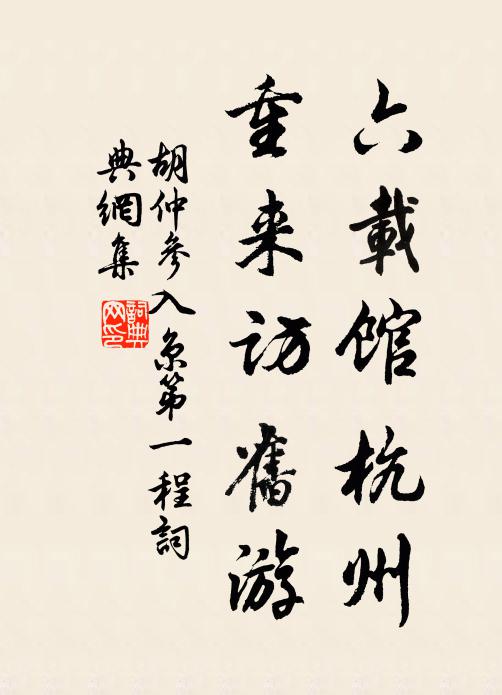 六載館杭州
重来访舊游
胡仲參入京第一程詞
典網集
詞典网印